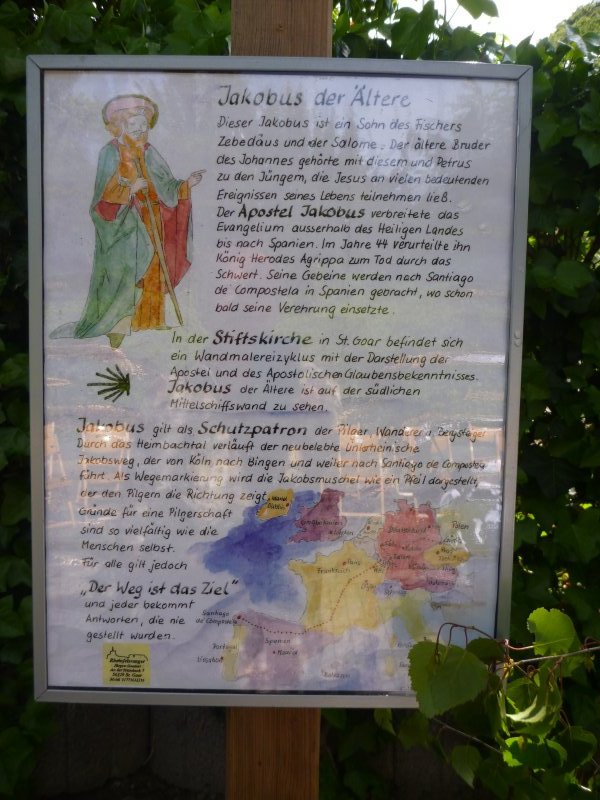 Jakobus der Ältere
Dieser Jakobus ist ein Sohn des Fischers
Zebedäus und der Salome. Der ältere Bruder
des Johannes gehörte mit diesem und Petrus
zu den Jüngern, die Jesus an vielen bedeutenden
Ereignissen seines Lebens teilnehmen ließ.
Der Apostel Jakobus verbreitete das
Evangelium ausserhalb des Heiligen Landes
bis nach Spanien. Im Jahre 44 verurteilte ihn
König Herodes Agrippa zum Tod durch das
Schwert. Seine Gebeine werden nach Santiago
de Compostela in Spanien gebracht, wo schon
bald seine Verehrung einsetzte.
In der Stiftskirche in St. Goar befindet sich
ein Wandmalereizyklus mit der Darstellung der
Apostel und des Apostolischen Glaubensbekenntnisses.
Jakobus der Ältere ist auf der südlichen
Mittelschiffswand zu sehen.
Jakobus gilt als Schutzpatron der Pilger, Wanderer u. Bergsteiger
Durch das Heimbachtal verläuft der neubelebte Linksrheinische
Jakobsweg, der von Köln nach Bingen und weiter nach Santiago de Compostela
führt. Als Wegemarkierung wird die Jakobsmuschel wie ein Pfeil dargestellt,
der den Pilgern die Richtung zeigt.
Gründe für eine Pilgerschaft
sind so vielfältig wie die
Menschen selbst.
Für alle gilt jedoch
„Der Weg ist das Ziel"
und jeder bekommt
Antworten, die nie
gestellt wurden.
Irland
Dublin
Großbritannien
London
Deutschland
Polen
Paris
Frankreich
Santiago
de Compostela
Portugal
Lissabon
Spanien
Madrid
Rheinfelssänger
56329 St. Goar